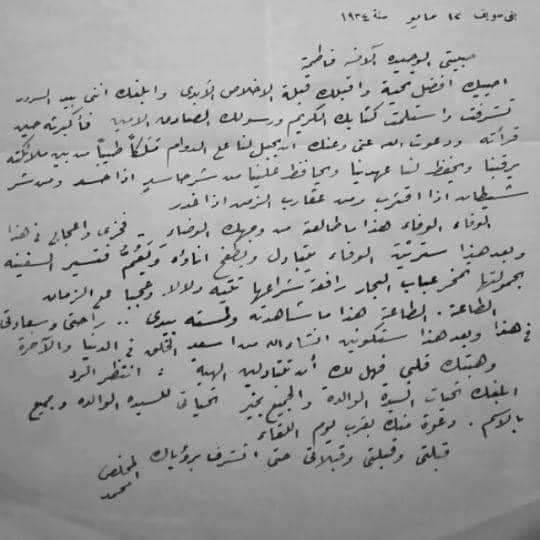 بنى سويف ١٢ مايو سنة ١٩٣٤
حبيبتى الوحيدة الآنسة فاطمة
احييك افضل تحية واقبلك قبلة الاخلاص الأبدى وابلغك انى بيد السرور
تشرفت واستلمت كتابك الكريم ورسولك الصادق الامين فأكبرته حين
قرأته ودعوت الله عنى وعنك ان يجعل لنا على الدوام ملاكاً طيباً من بين ملائكته
يرقبنا ويحفظ لنا عهدنا ويحافظ علينا من شر حاسد اذا حسد ومن شر
شيطان اذا اقترب ومن عقارب الزمن اذا غدر
الوفاء الوفاء هذا ما طالعته من وجهك الوضاء .. فخرى واعجابى فى هذا
وبعد هذا سترين الوفاء يتبادل ويطفح اناؤه ويعم فتسير السفينة
بحمولتها تمخر عباب البحار رافعة شراعها تيه ودلالا وعجبا على الزمان
الطاعة . الطاعة هذا ما شاهدته ولمسته بيدى .. راحتى وسعادتى
فى هذا وبعد هذا ستكونين انشاء الله من اسعد الخلق فى الدنيا والآخرة
وهبتك قلبى فهل لك أن تتقبلين الهبة ؟ انتظر الرد
ابلغك تحيات السيدة الوالدة والجميع بخير تحياتى للسيدة الوالدة وجميع
بالاسم . دعوة منك بقرب يوم اللقاء
قبلتى وقبلتى وقبلاتى حتى اتشرف برؤياك
المخلص
محمد